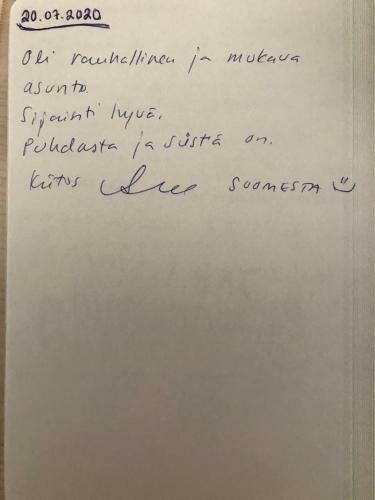 20.07.2020
Oli rauhallinen ja mukava
asunto.
Sijainti hyvä.
Puhdasta ja siistiä on.
Kiitos SUOMESTA